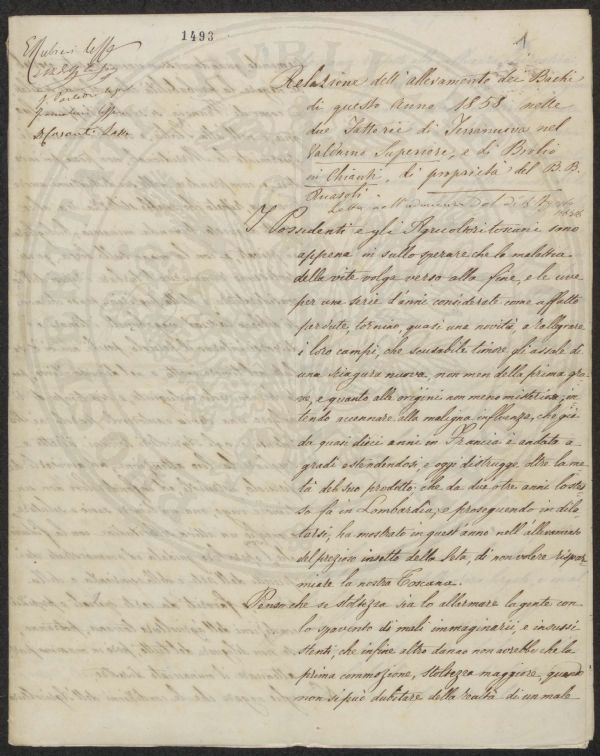 1493
1
Relazione dell'allevamento dei Bachi
di questo anno 1858 nelle
due Fattorie di Terranuova nel
Valdarno Superiore, e di Brolio
in Chianti, di proprietà del B. B.
Ricasoli
Letta nell'adunanza del dì
I Possidenti e gli Agricoltori toscani sono
appena in sullo sperare che la malattia
della vite volga verso alla fine, e le uve
per una serie d'anni considerate come affatto
perdute, tornino, quasi una novità, a rallegrare
i loro campi, che scusabile timore gli assale di
una sciagura nuova, non men della prima gra-
ve, e quanto alle origini non meno misteriosa; in-
tendo accennare alla maligna influenza, che già
da quasi dieci anni in Francia è andata a
gradi estendendosi, e oggi distrugge oltre la me-
tà del suo prodotto; che da due o tre anni lo stes-
so fa in Lombardia; e proseguendo in dila-
tarsi, ha mostrato in quest'anno nell'allevamento
del prezioso insetto della Seta, di non volere rispar-
miare la nostra Toscana.
Penso che se stoltezza sia lo allarmare la gente con
lo spavento di mali immaginarii, e insussi-
stenti, che infine altro danno non avrebbe che la
prima commozione, stoltezza maggiore, quando
non si può dubitare della realtà di un male